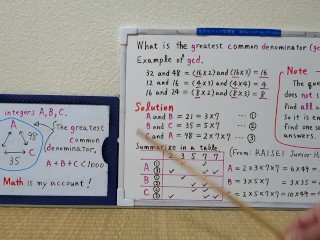 What is the greatest common denominator (gc
Example of gcd.
32 and 48 = (16×2) and (16×3) = 16
12 and 16 = (4×3) and (4×4) = 4
16 and 24 = (8×2) and (8×3) = 8
Note
The
does not s
find all
So it is en
find one
Solution
A and B = 21 = 3×7 ... ①
B and C = 35 = 5×7 ... ②
C and A = 98 = 2×7×7 ... ③
Summarize in a table
(From: KAISEI Junior H
2 3 5 7 7
A ① ③
B ① ②
C ② ③
A = 2×3×7×7 = 6×49 =
B = 3×5×7 = 3×35 =
C = 2×5×7×7 = 10×49 =
integers A, B, C.
A
98
C
35
The greatest
common
denominator,
A+B+C<1000
Math is my account!